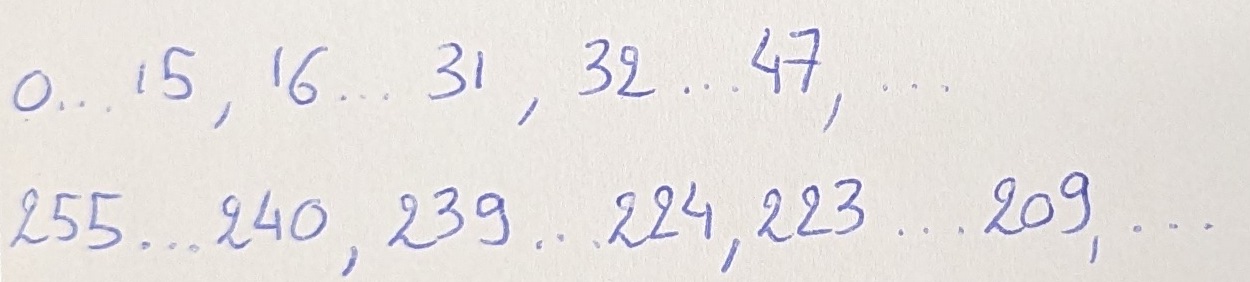 0... 15, 16... 31, 32 ... 47, ...
255...240, 239...224, 223 .... 209, ....